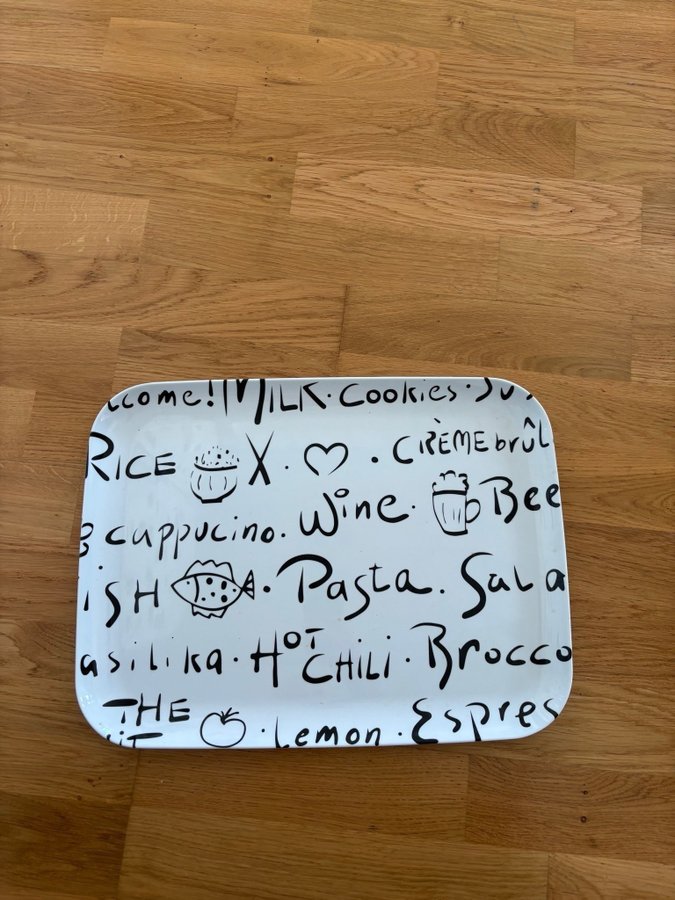 come! MILK · Cookies · Su
RICE · · CRÈME brûl
cappucino. Wine · Bee
iSH · Pasta. Sala
asilika · HOT CHILI · Brocco
THE · Lemon · Espres
iT